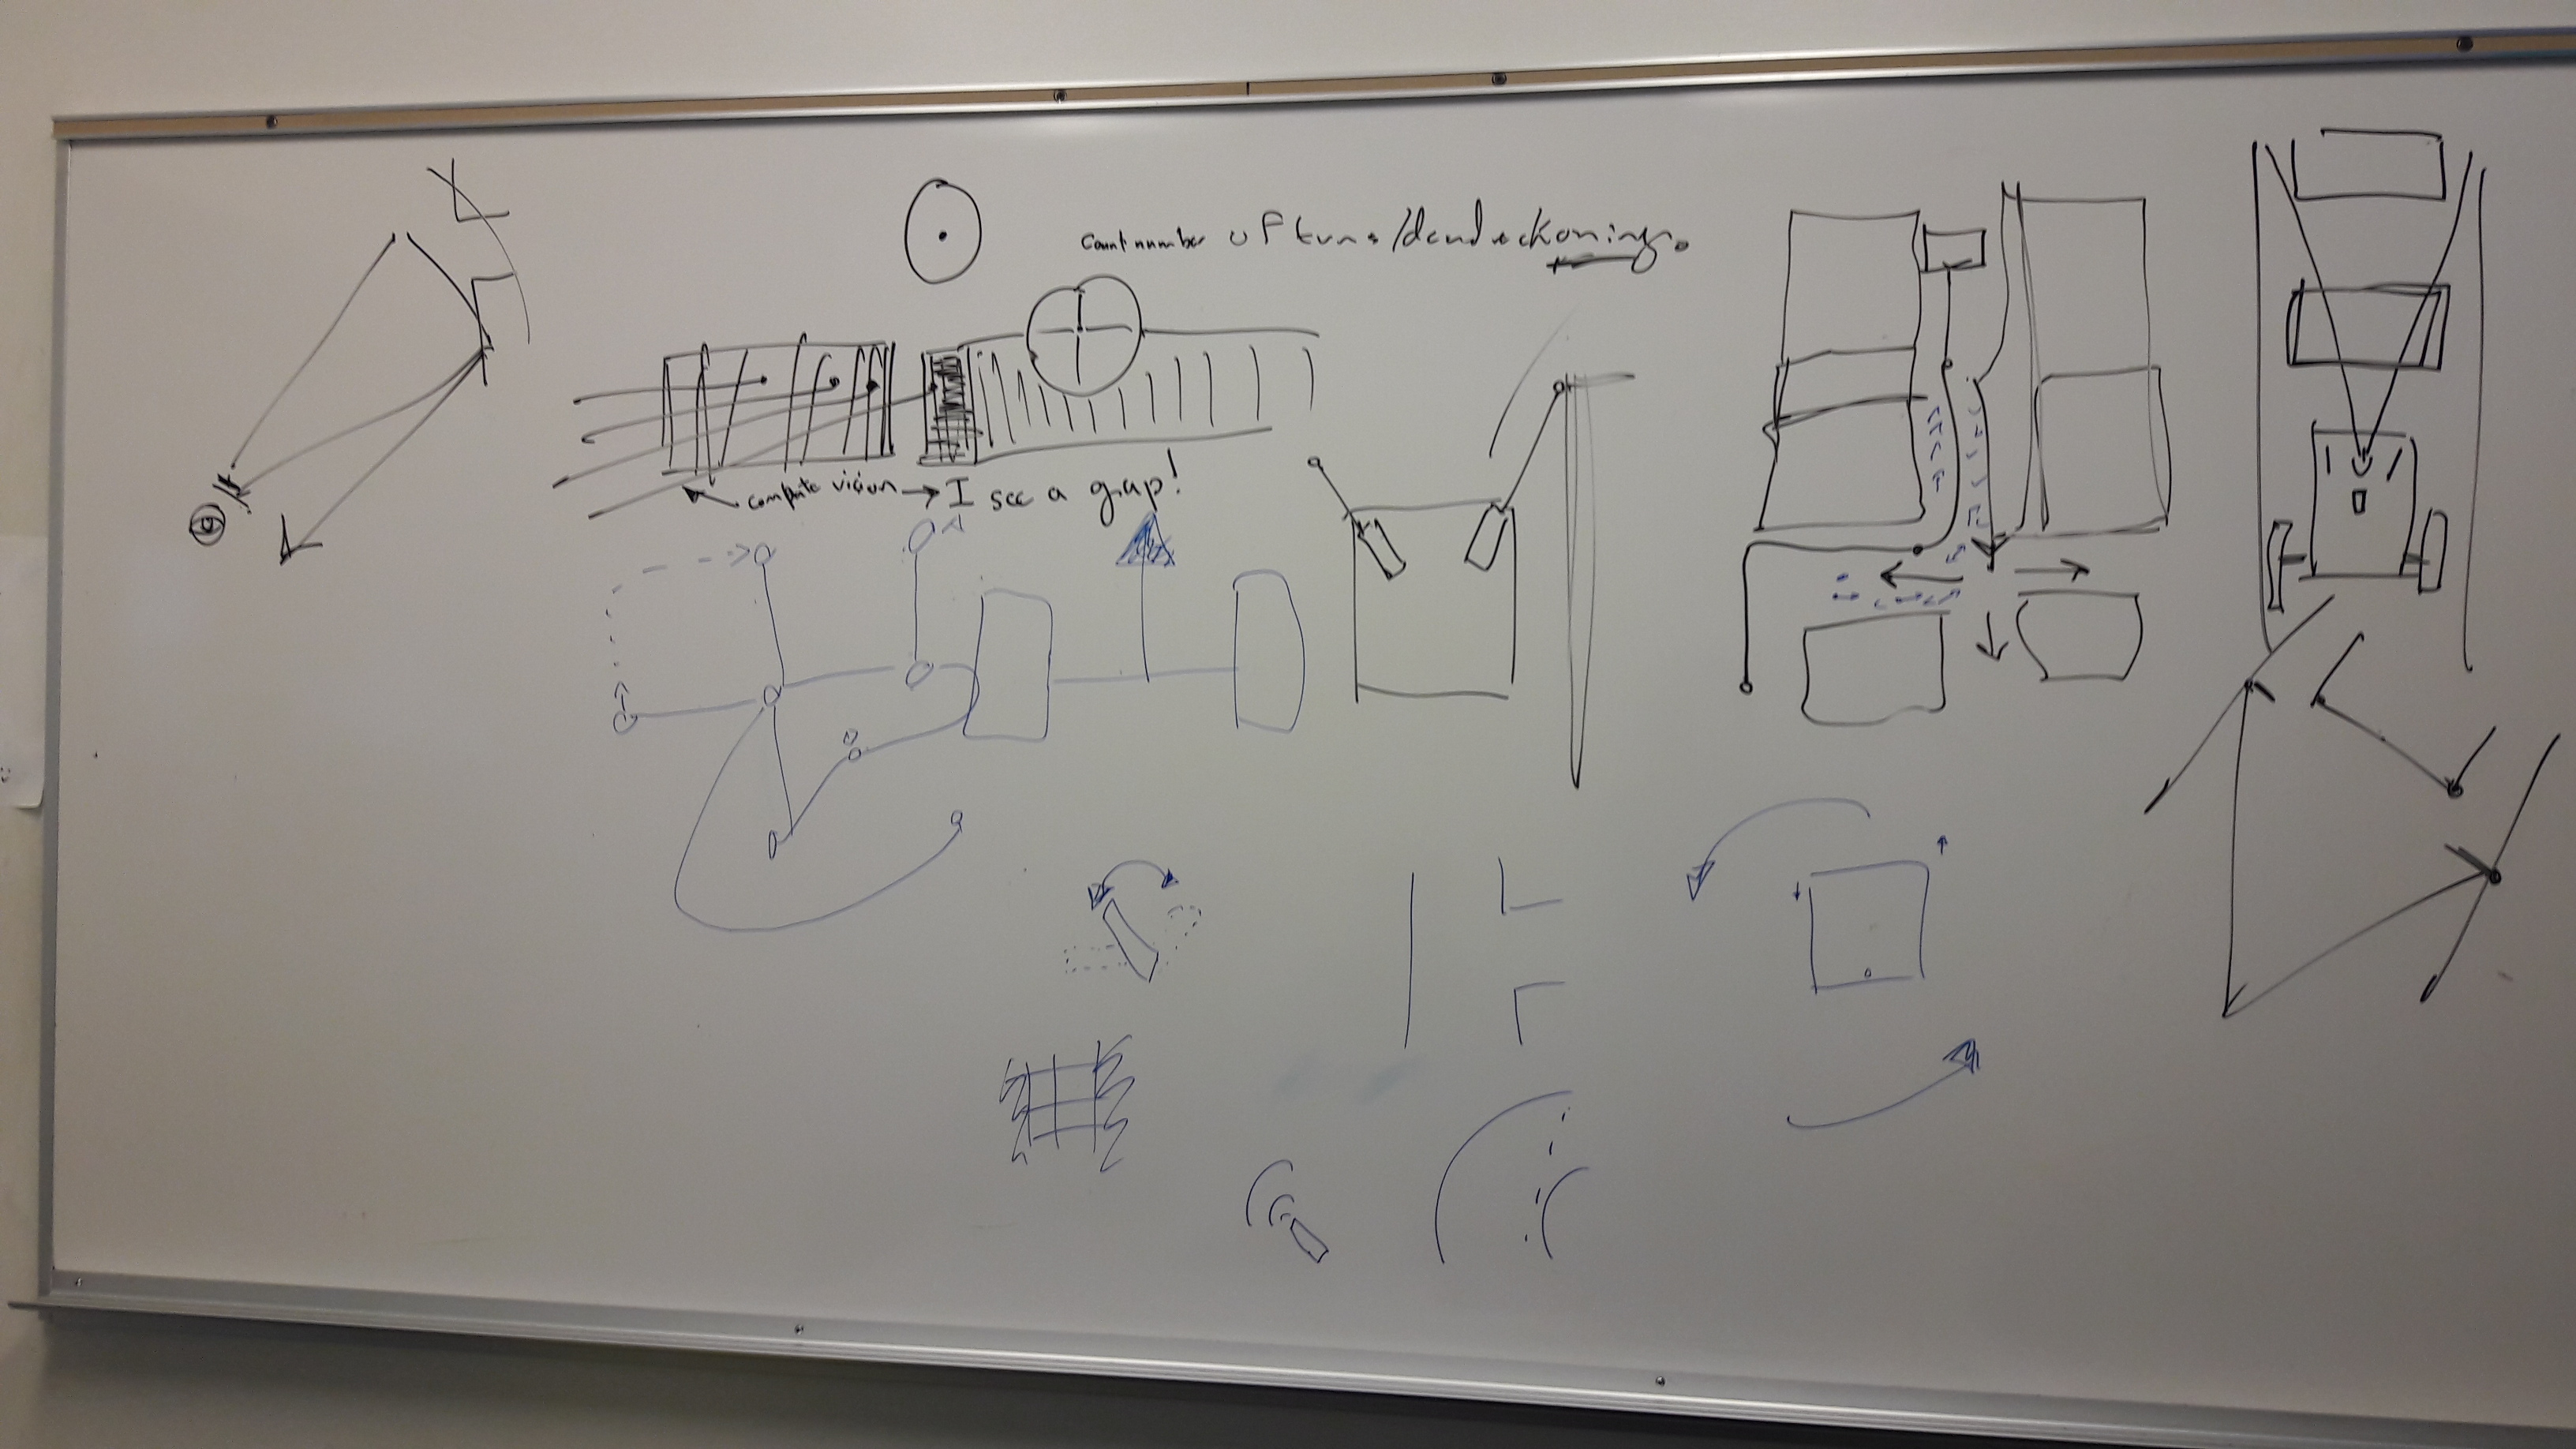 Count number of turns/deadreckoning.
compute vision → I see a gap!